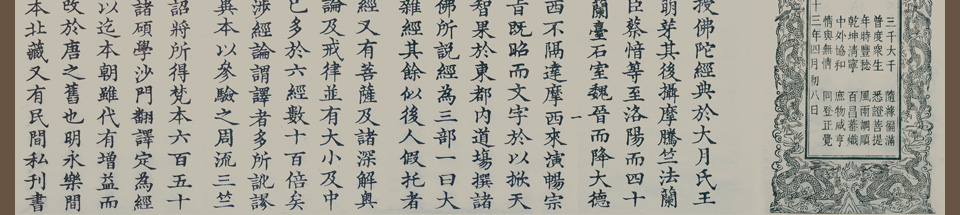 三千大千 隨緣圓滿
普度眾生 悉證菩提
年時豐稔 風雨調順
乾坤清寧 百昌蕃熾
中外協和 庶物咸亨
情與無情 同登正覺
十三年四月初八日
授佛陀經典於大月氏王
萌芽其後攝摩騰竺法蘭
臣蔡愔等至洛陽而四十
蘭臺石室魏晉而降大德
西不隔達摩西來演暢宗
旨既昭而文字於以掀天
智果於東都內道場撰諸
佛所說經為三部一曰大
雜經其餘似後人假托者
經又有菩薩及諸深解奧
論及戒律並有大小及中
已多於六經數十百倍矣
涉經論謂譯者多所訛謬
本以參驗之周流三竺
詔將所得梵本六百五十
諸碩學沙門翻譯定為經
以迄本朝雖代有增益而
於唐之舊也明永樂間
本北藏又有民間私刊書